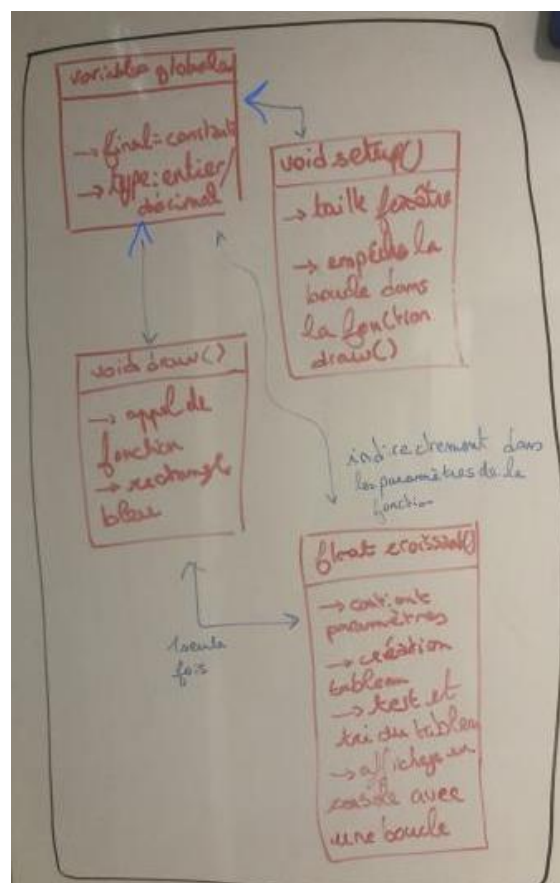 variables globales
→ final = constant
→ type: entier/
décimal
void setup()
→ taille fenêtre
→ empêche la
boucle dans
la fonction
draw()
void draw()
→ appel de
fonction
→ rectangle
bleu
indirectement dans
les paramètres de la
fonction
1 seule
fois
float croissant()
→ contient
paramètres
→ création
tableau
→ test et
tri du tableau
→ affichage en
console avec
une boucle